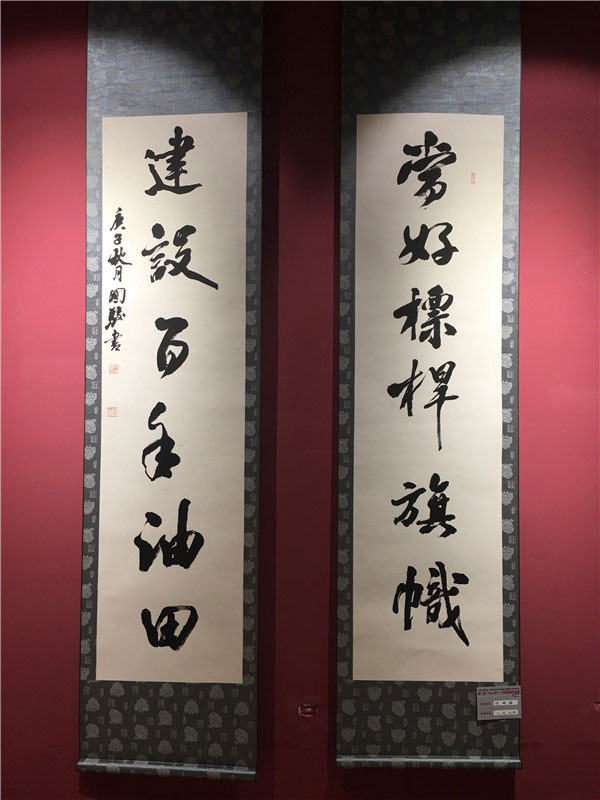 當好標桿旗幟
建設百年油田
庚子秋月国駿書